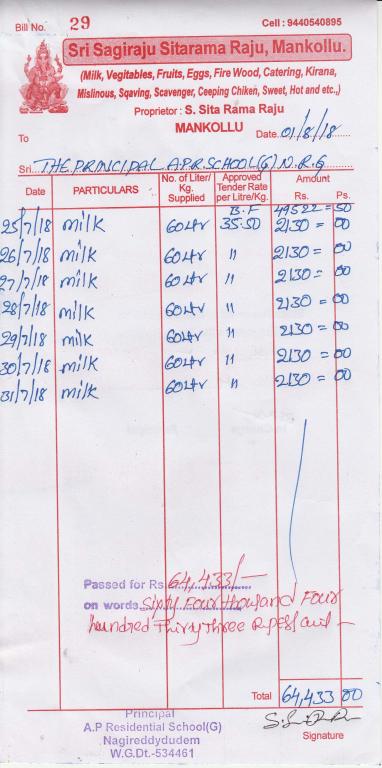 Bill No. 29 Cell : 9440540895
Sri Sagiraju Sitarama Raju, Mankollu.
(Milk, Vegitables, Fruits, Eggs, Fire Wood, Catering, Kirana,
Mislinous, Sqaving, Scavenger, Ceeping Chiken, Sweet, Hot and etc.,)
Proprietor : S. Sita Rama Raju
MANKOLLU
To Date. 01/8/18
Sri... THE PRINCIPAL A.P.R SCHOOL(G) N.R.G
Date PARTICULARS No. of Liter/ Kg. Supplied Approved Tender Rate per Litre/Kg. Amount Rs. Ps.
B.F 49522 = 50
25/7/18 milk 60 Ltr 35.50 2130 = 00
26/7/18 milk 60 Ltr " 2130 = 00
27/7/18 milk 60 Ltr " 2130 = 00
28/7/18 milk 60 Ltr " 2130 = 00
29/7/18 milk 60 Ltr " 2130 = 00
30/7/18 milk 60 Ltr " 2130 = 00
31/7/18 milk 60 Ltr " 2130 = 00
Passed for Rs. 64,433/-
on words. Sixty Four thousand Four
hundred Thirty Three
Total 64,433 00
Principal
A.P Residential School(G)
Nagireddydudem
W.G.Dt.-534461
Signature